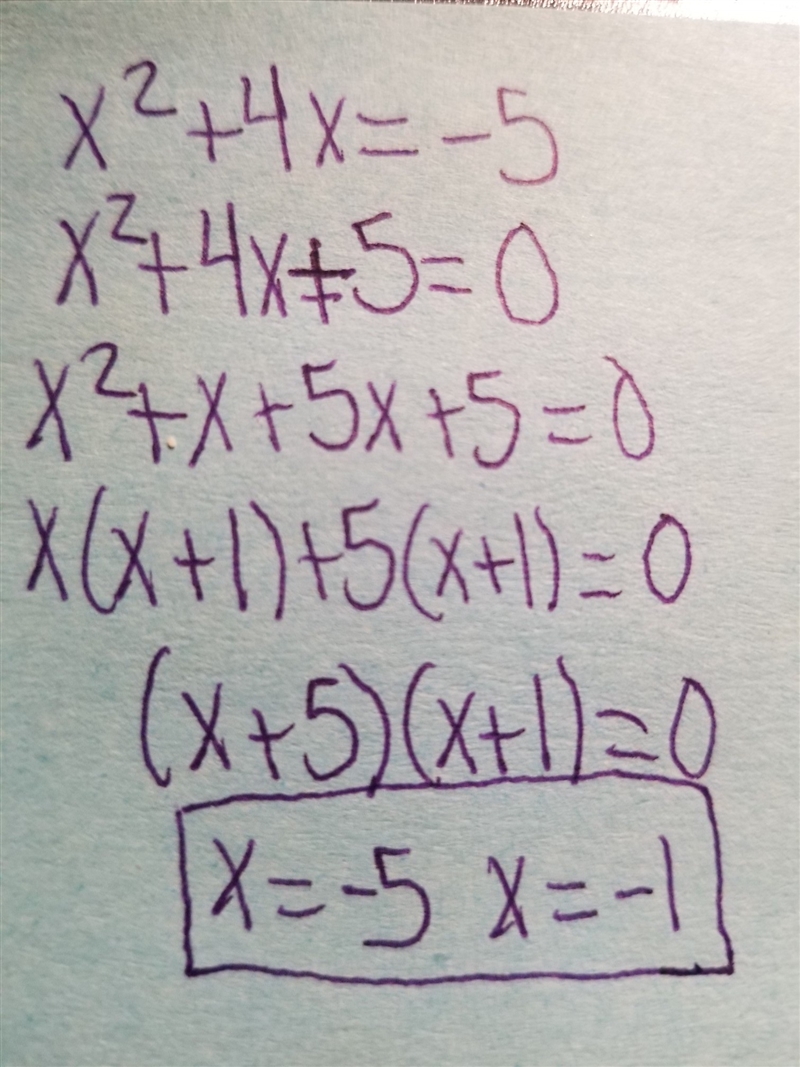 x² + 4x = -5
x² + 4x + 5 = 0
x² + x + 5x + 5 = 0
x(x + 1) + 5(x + 1) = 0
(x + 5)(x + 1) = 0
x = -5 x = -1